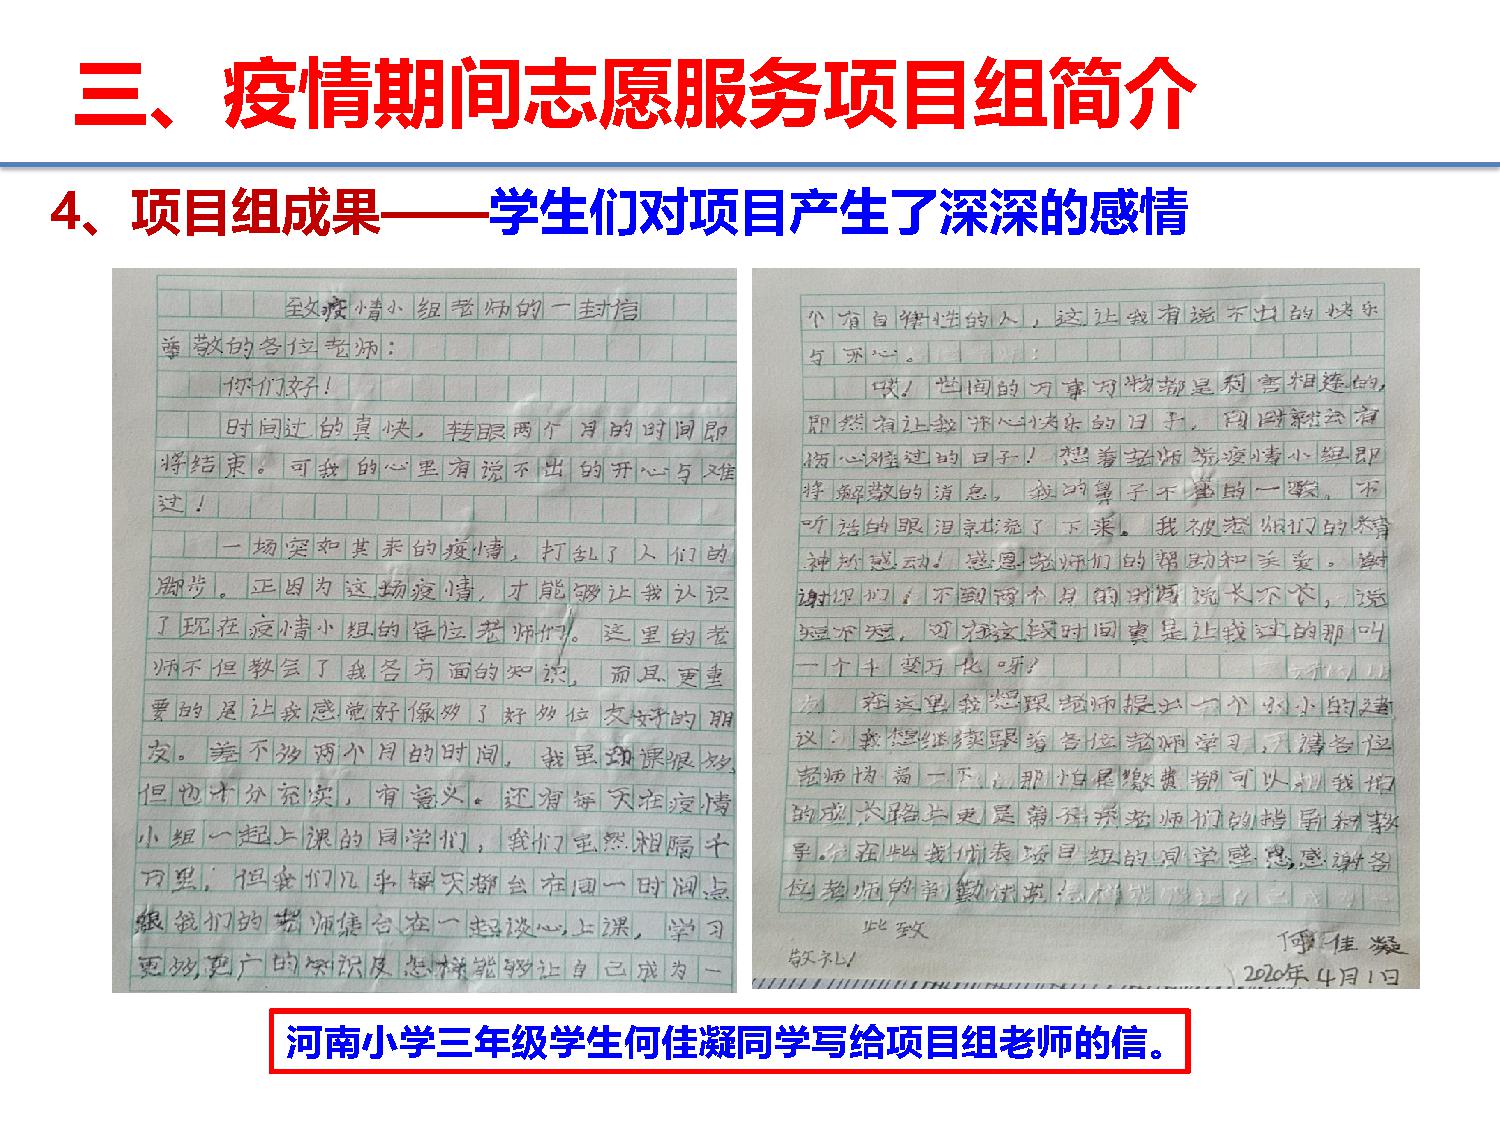 三、疫情期间志愿服务项目组简介
4、项目组成果——学生们对项目产生了深深的感情
致疫情小组老师的一封信
尊敬的各位老师：
你们好！
时间过的真快，转眼两个月的时间即
将结束。可我的心里有说不出的开心与难
过！
一场突如其来的疫情，打乱了人们的
脚步。正因为这场疫情，才能够让我认识
了现在疫情小组的每位老师们。这里的老
师不但教会了我各方面的知识，而且更重
要的是让我感觉好像多了好多位友好的朋
友。差不多两个月的时间，我虽 课很多，
但也十分充实，有意义。还有每天在疫情
小组一起上课的同学们，我们虽然相隔千
万里，但我们几乎每天都会在同一时间点
跟我们的老师集合在一起谈心，上课，学习
更多，更广的知识及怎样能够让自己成为一
个有自律性的人，这让我有说不出的快乐
与开心。
哎！世间的万事万物都是利害相连的，
即然有让我开心快乐的日子，同时就会有
伤心难过的日子！想着老师说疫情小组即
将解散的消息，我的鼻子不 的一酸，不
听话的眼泪就流了下来。我被老师们的精
神所感动！感恩老师们的帮助和关爱。谢
谢你们！不到两个月的时间说长不长，说
短不短，可在这段时间真是让我过的那叫
一个千变万化呀！
在这里我想跟老师提出一个小小的建
议：我想继续跟着各位老师学习，请各位
老师协商一下，那怕是缴费都可以，
的成长路上更是需 老师们的指导和教
导。在此我代表项目组的同学感恩，感谢各
位老师的辛勤付出！
此致
敬礼！
何佳凝
2020年4月1日
河南小学三年级学生何佳凝同学写给项目组老师的信。